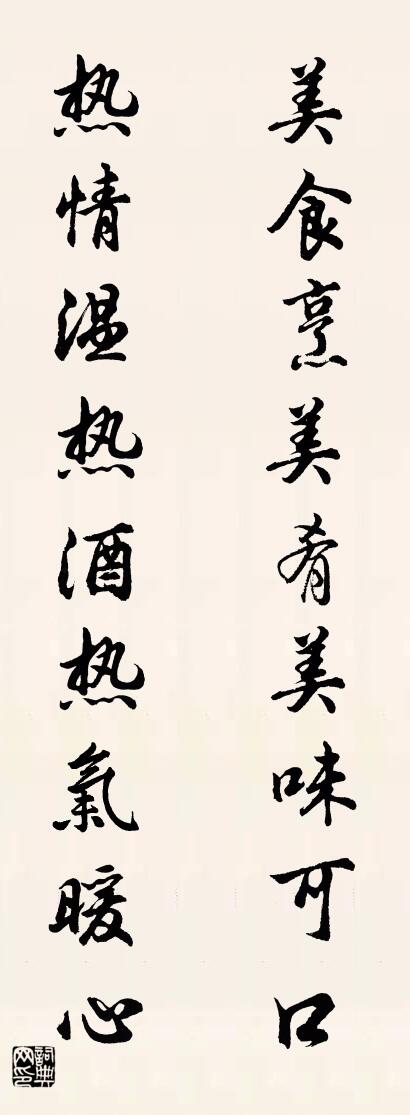 美食烹美肴美味可口
热情温热酒热氣暖心
詞典网印